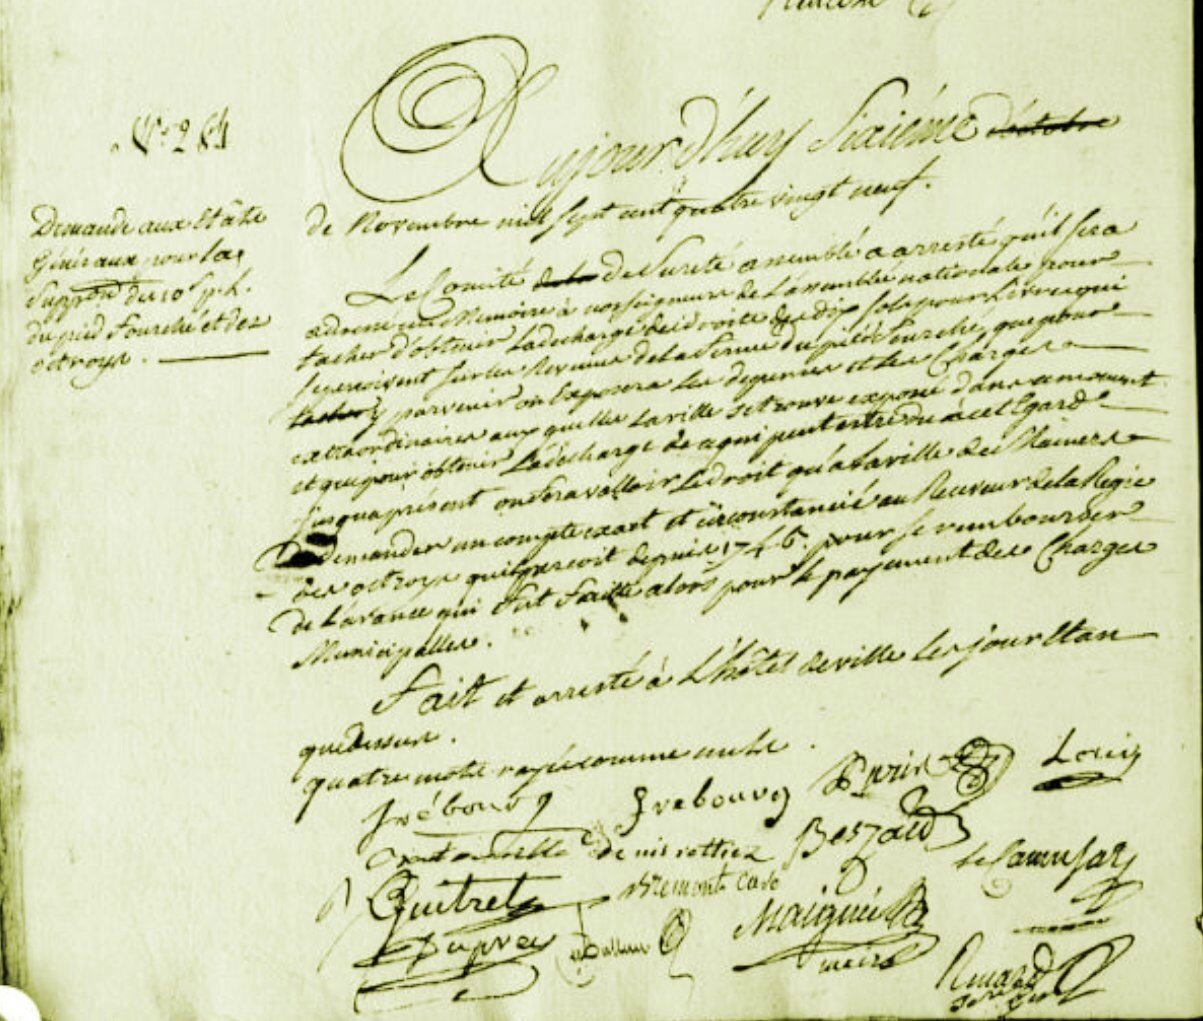 N.º 284
Demande aux Etats
Généraux pour la
Supp.on des 10 s. p. L.
du pied fourché et des
octroys.
Aujourd'huy Sixiéme d'octobre
de Novembre mil sept cent quatre vingt neuf.
Le Comité de la de Sureté assemblé a arresté qu'il sera
adressé un Memoire à nosseigneurs de L'assemblée nationale pour
tacher d'obtenir La decharge des droits des dix sols pour Livre qui
se perçoivent sur les Revenus de La ferme du pied fourché, que pour
tacher y parvenir on Exposera Les depenses et Les Charges
extraordinaires aux quelles La ville se trouve exposée dans ce moment
et que pour obtenir La decharge de ce qui peut estre du à cet Egard
jusqu'a présent on fera valloir Le droit qu'a La ville du
demander un compte exact et circonstancié au Receveur de La Regie
des octroys qu'il perçoit depuis 1746. pour se rembourser
de L'avance qui fut faitte alors pour le payement des Charges
Municipalles.
Fait et arresté à L'hôtel de ville Les jour Et an
que dessus.
quatre mots rayés comme nuls.
frébourg frebourg Louis
de nis rottiez Bezard
Quitret Bremont
Dupré Maigné
maire